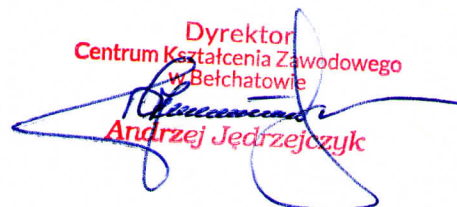 Dyrektor
Centrum Kształcenia Zawodowego
w Bełchatowie
Andrzej Jędrzejczyk